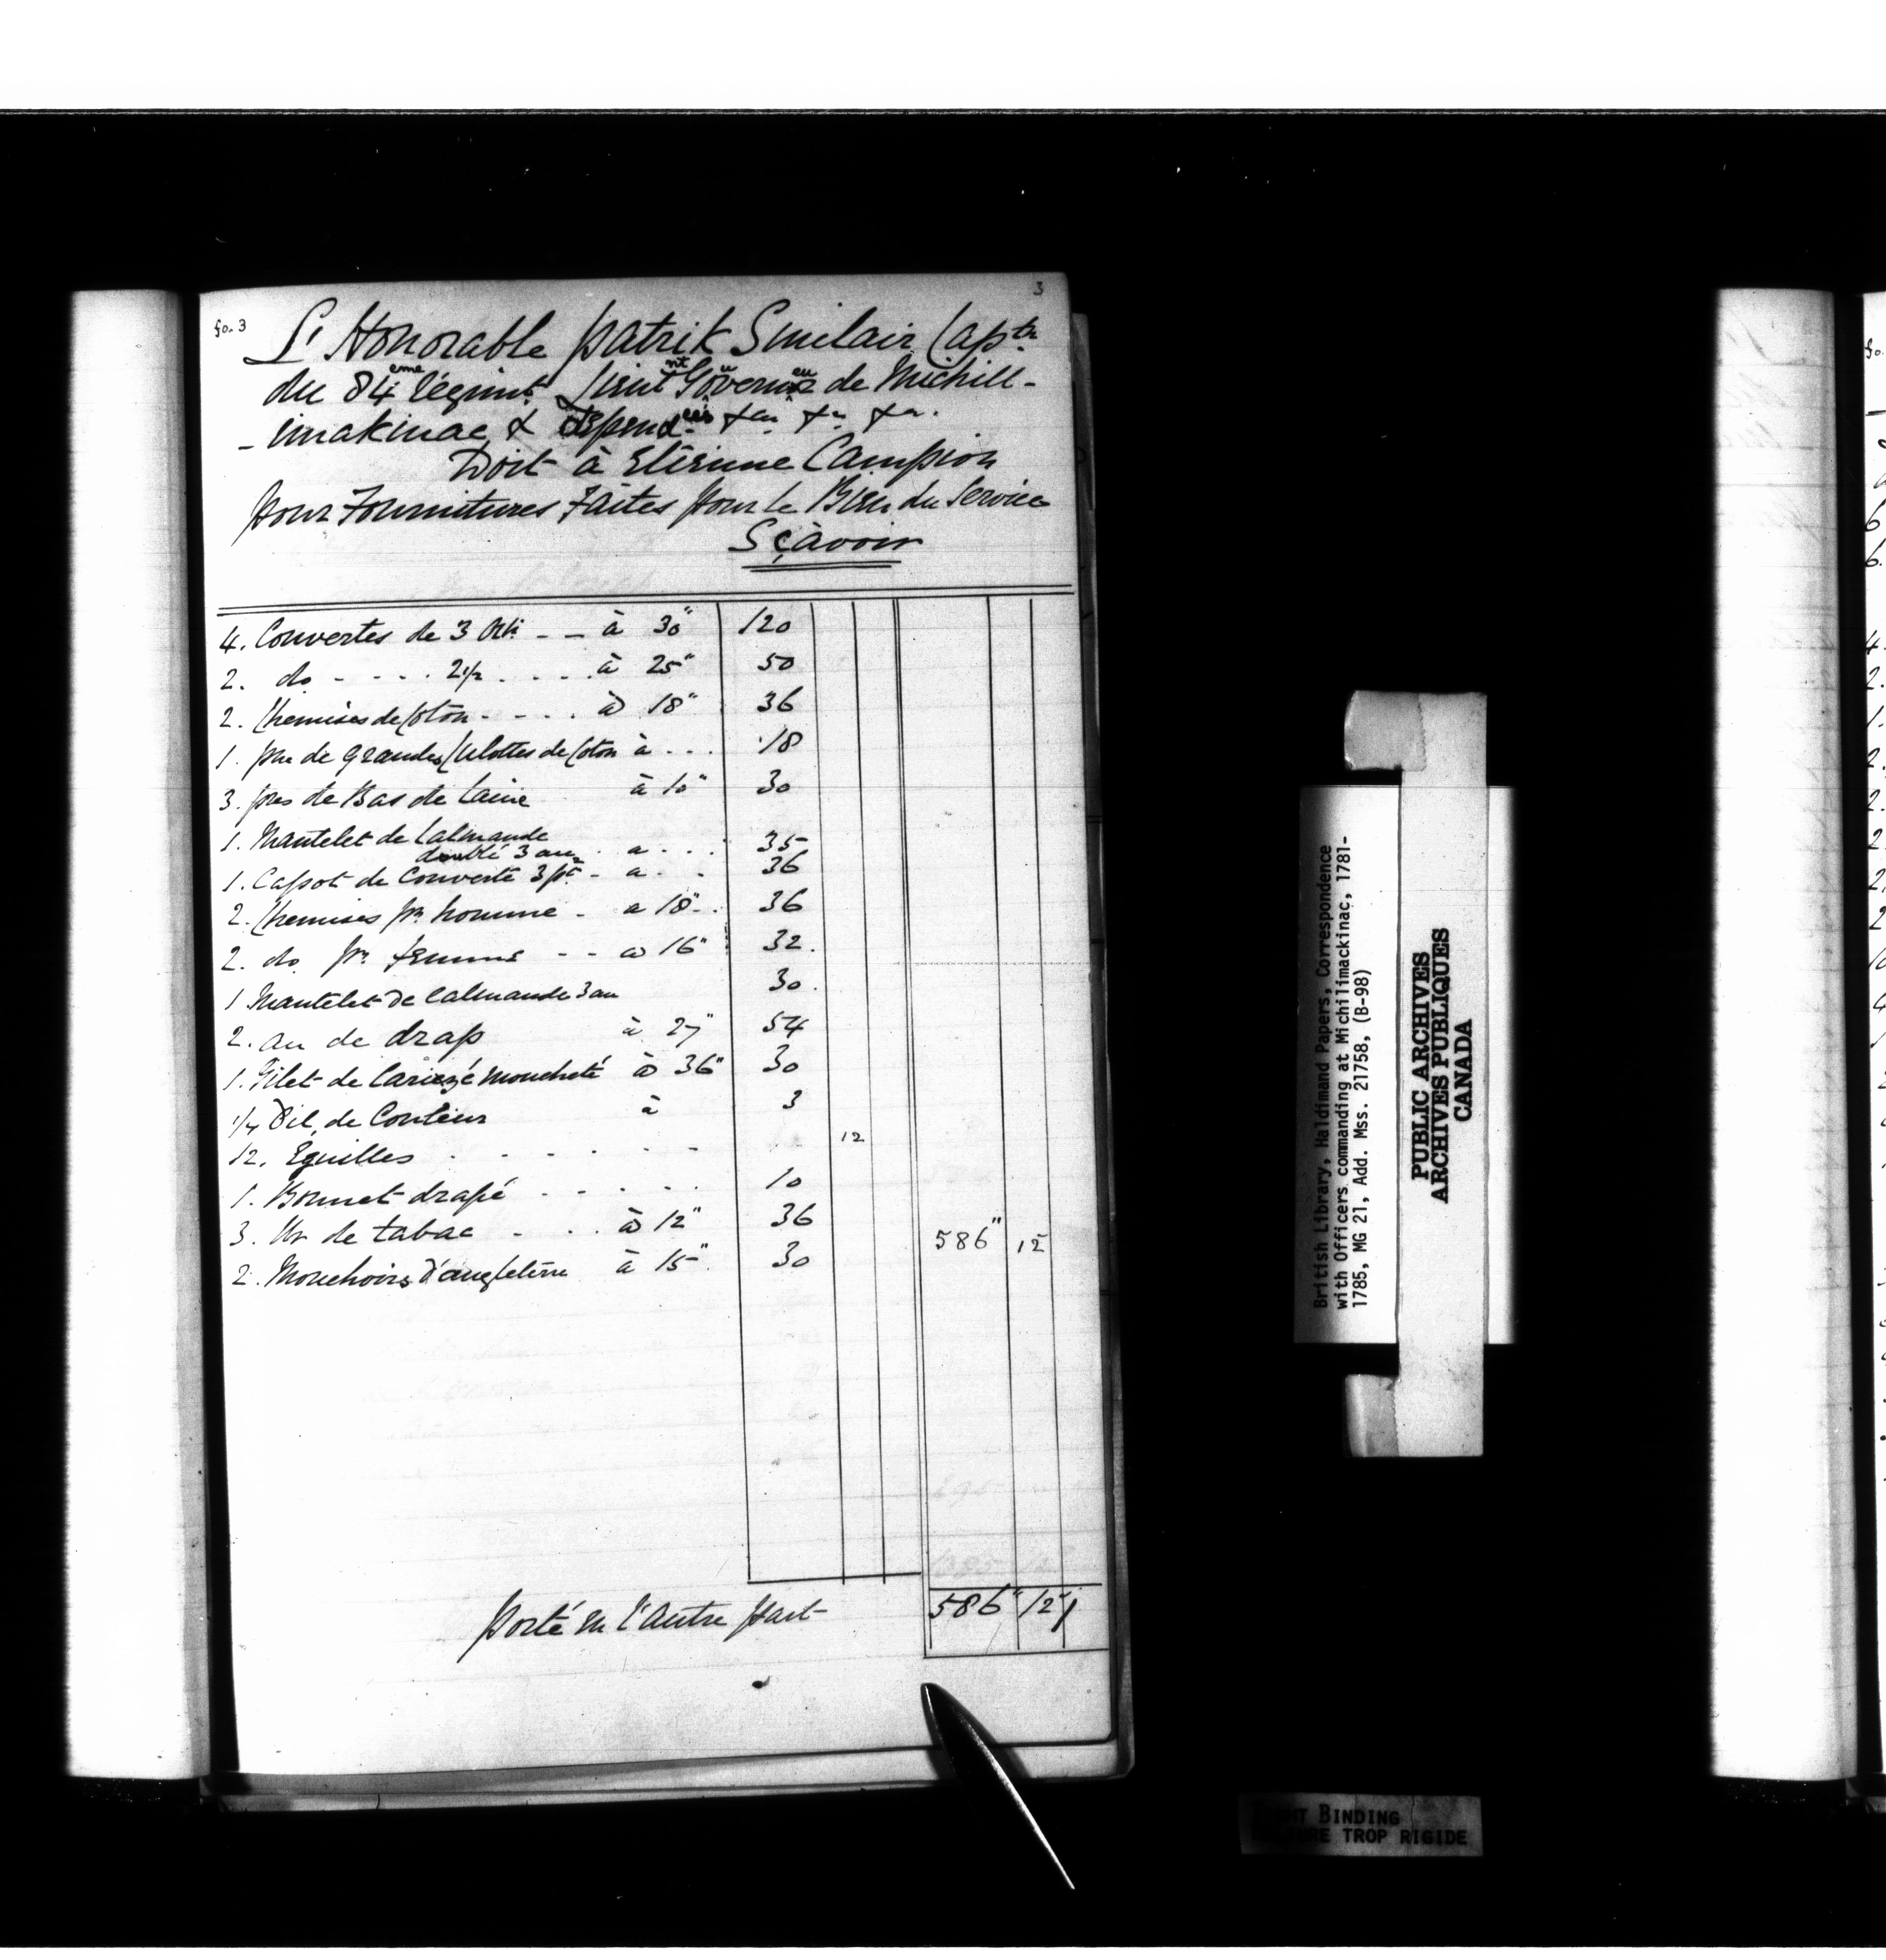 3
fo. 3
L'Honorable patrik Sinclair Capte
du 84eme Régimt Lieutnt Gouverneu de Michili-
-imakinac & dépendces &a &a &a.
Doit à Etienne Campion
pour Fournitures Faites pour Le Bien du Service
Sçavoir
4. Couvertes de 3 - - à 30" 120
2. do - - . . 2 1/2 . . . . à 25" 50
2. Chemises de Coton . - - . à 18" 36
1. pre de grandes Culottes de Coton à . . . 18
3. pres de Bas de Laine à 10" 30
1. Mantelet de Calmande
doublé 3 au . a . . . 35
1. Capot de Couverte 3 pt - a . . 36
2. Chemises pr homme . a 18" . . 36
2. do pr femme - - a 16" 32.
1 Mantelet de Calmande 3 au 30.
2. au de drap à 27" 54
1. Gilet de Carizé Moucheté à 36" 30
1/4 de Couleur à 3
12. Eguilles . - . - - - 12
1. Bonnet drapé - . - . . 10
3. de tabac - . . à 12" 36
586" 12
2. Mouchoirs d'angleterre à 15" 30
porté en l'autre part 586" 12
British Library, Haldimand Papers, Correspondence
with Officers commanding at Michilimackinac, 1781-
1785, MG 21, Add. Mss. 21758, (B-98)
PUBLIC ARCHIVES
ARCHIVES PUBLIQUES
CANADA
BINDING
TROP RIGIDE